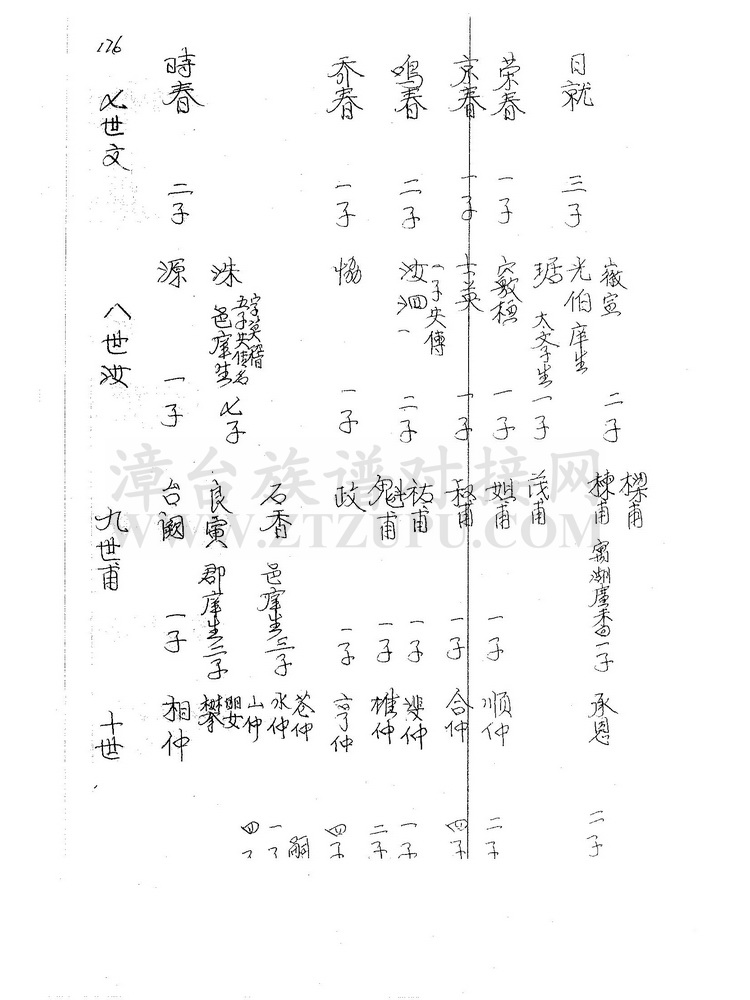 176
日就
三子
荣春
一子
京春
一子
鸣春
二子
乔春
一子
時春
二子
七世文
徽宣
二子
光伯庠生
琚 太学生
一子
一子
士英
一子
汝泗
一子失傳
二子
恊
一子
洙
字英階
五子失传名
邑庠生 七子
源
一子
八世汝
樑甫
棟甫 寓湖廣 一子
茂甫
姐甫
一子
叔甫
一子
祐甫
一子
魁甫
一子
政
一子
石香 邑庠生 三子
良寅 郡庠生 二子
台
一子
九世甫
承恩
二子
順仲
二子
合仲
四子
一子
椎仲
二子
亨仲
四子
苍仲
嗣
水仲
山仲
四
嬰
攀
相仲
十世
漳台族谱对接网
WWW.ZTZUPU.COM